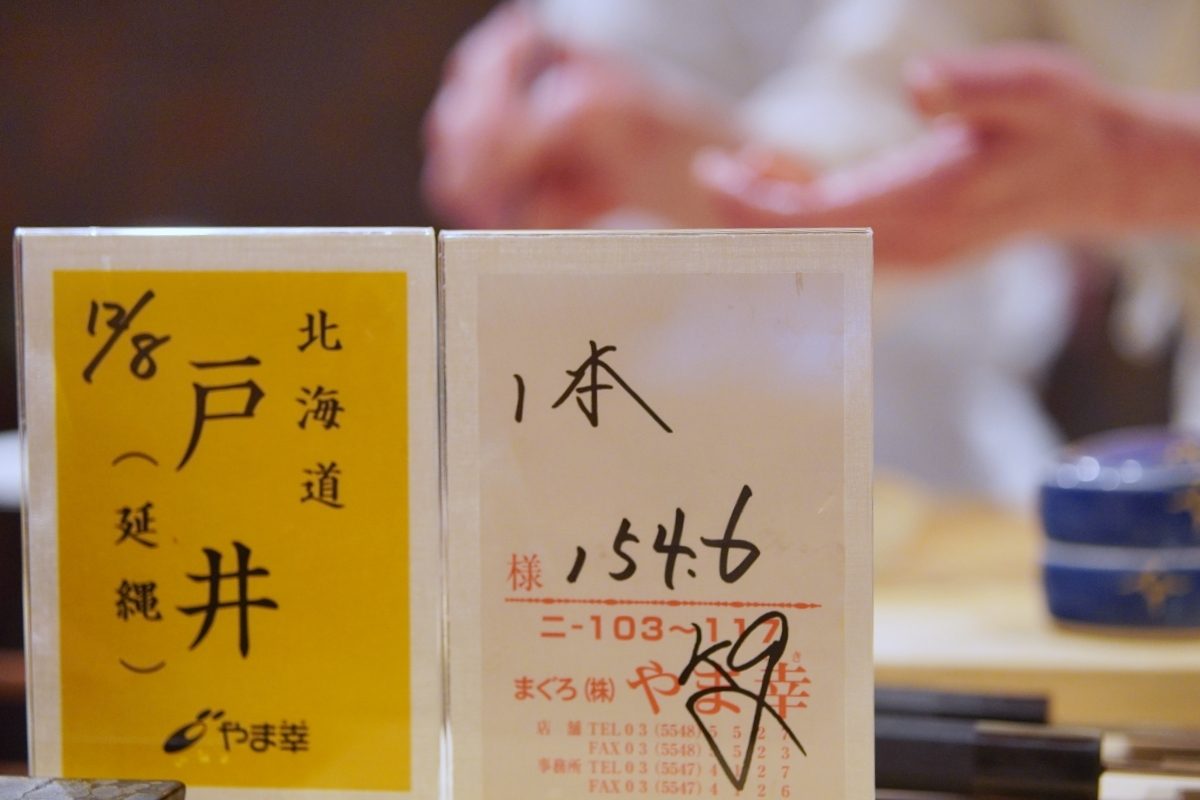 12/8
北海道
戸井
(延縄)
やま幸
1本
様 154.6
kg
ニ-103~117
まぐろ(株)やま幸
店 舗 TEL03(5548)5527
FAX03(5548)5523
事務所 TEL03(5547)4127
FAX03(5547)4126